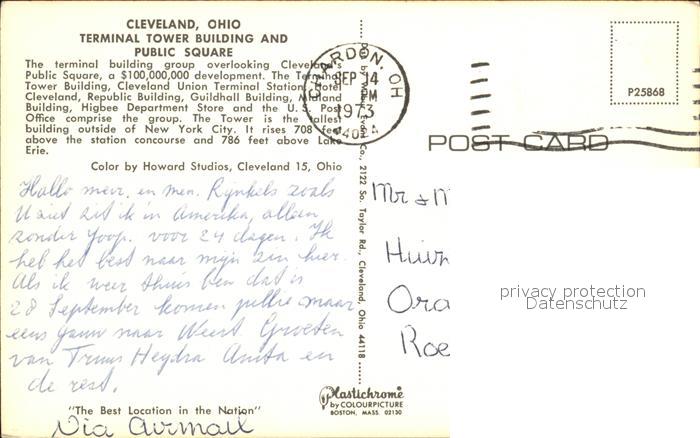 CLEVELAND, OHIO
TERMINAL TOWER BUILDING AND
PUBLIC SQUARE
The terminal building group overlooking Cleveland's
Public Square, a $100,000,000 development. The Terminal
Tower Building, Cleveland Union Terminal Station, Hotel
Cleveland, Republic Building, Guildhall Building, Midland
Building, Higbee Department Store and the U. S. Post
Office comprise the group. The Tower is the tallest
building outside of New York City. It rises 708 feet
above the station concourse and 786 feet above Lake
Erie.
Color by Howard Studios, Cleveland 15, Ohio
Hallo mevr. en men. Rijnkels zoals
U ziet zit ik in Amerika, alleen
zonder Joop. voor 24 dagen. Ik
heb het best naar mijn zin hier.
Als ik weer thuis ben dat is
28 September komen jullie maar
eens gauw naar Weert Groeten
van Truus Heydra Anita en
de rest.
"The Best Location in the Nation"
Via Airmail
CHARDON, OH
SEP 14
PM
1973
44024
Co., 2122 So. Taylor Rd., Cleveland, Ohio 44118
Plastichrome
by COLOURPICTURE
BOSTON, MASS. 02130
P25868
POST CARD
Mr & M
Huiv
Ora
Roe
privacy protection
Datenschutz